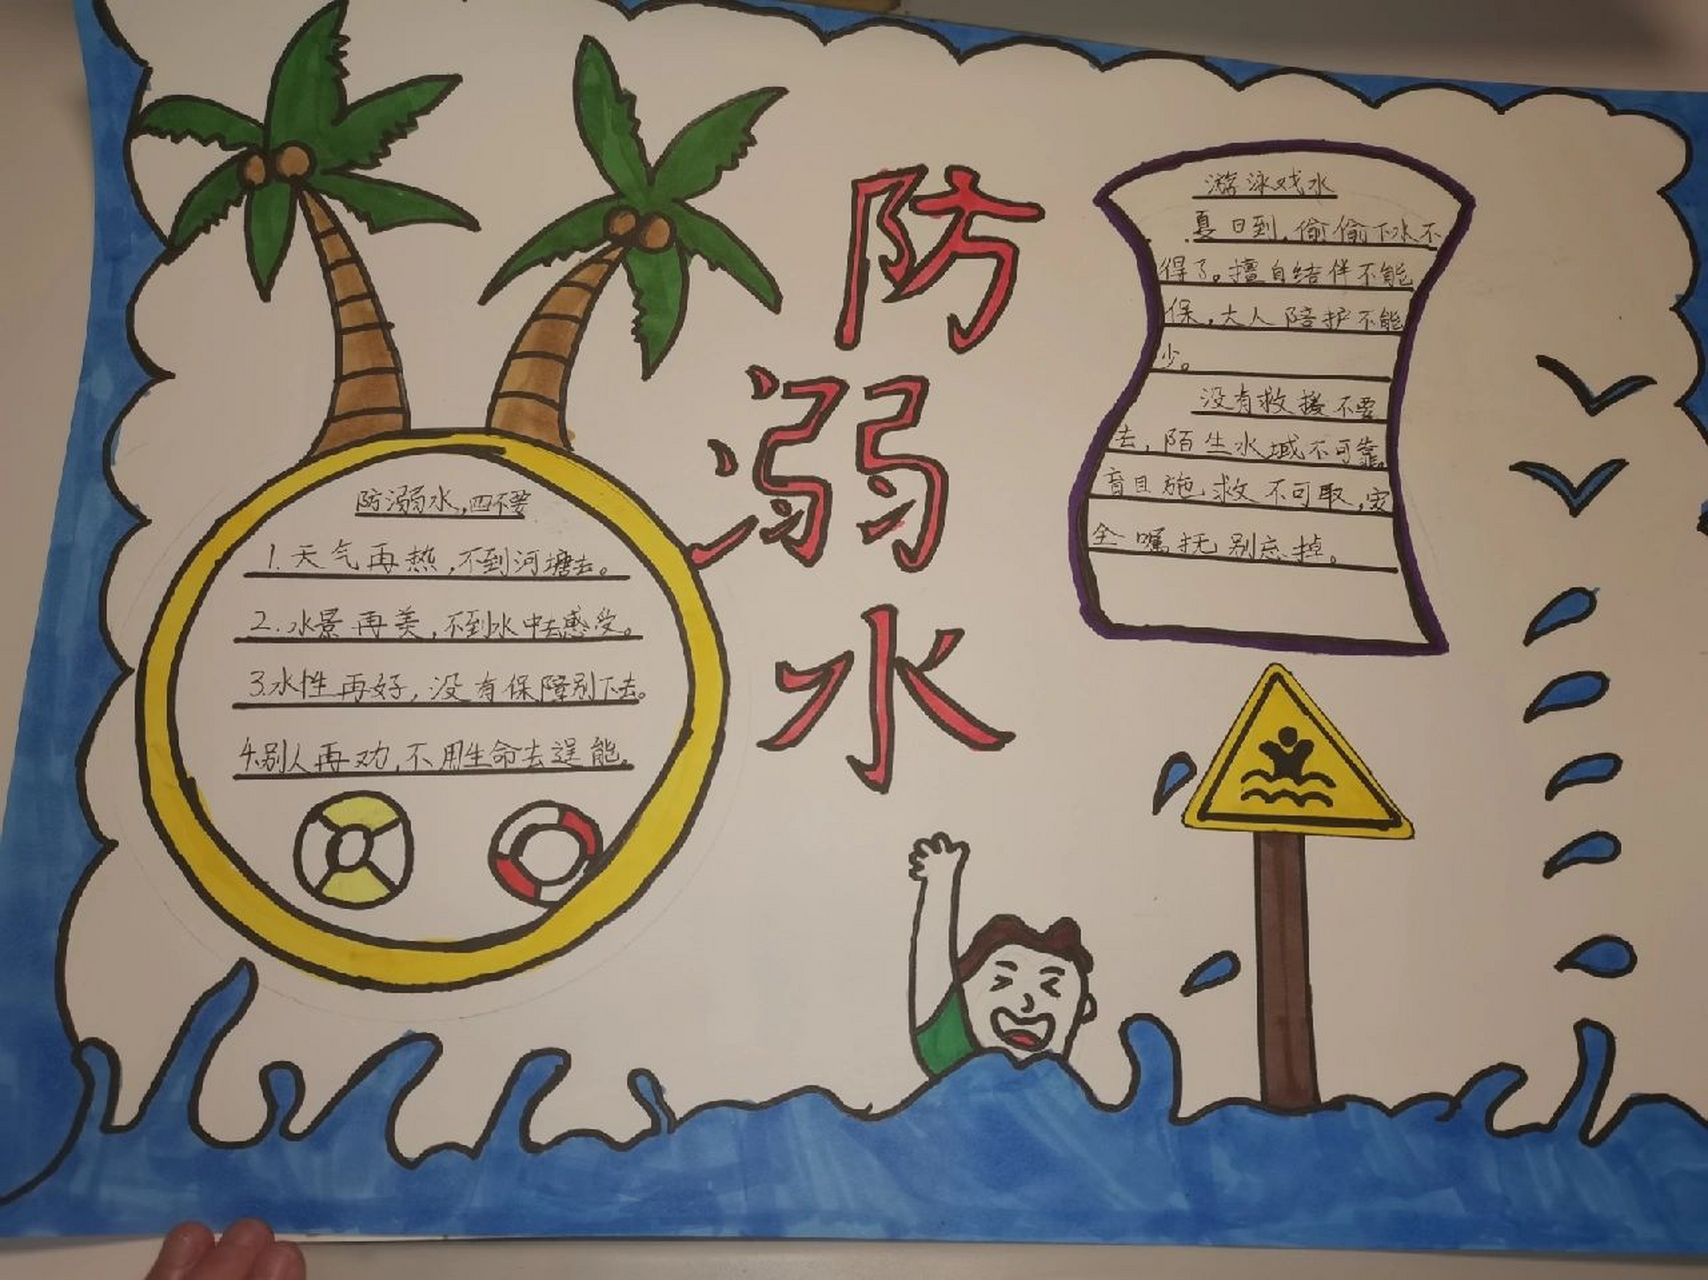 防溺水
防溺水,四不要
1.天气再热,不到河塘去。
2.水景再美,不到水中去感受。
3.水性再好,没有保障别下去。
4.别人再劝,不用生命去逞能。
游泳戏水
夏日到,偷偷下水不
得了。擅自结伴不能
保,大人陪护不能
少。
没有救援不要
去,陌生水域不可靠,
盲目施救不可取,安
全嘱抚别忘掉。